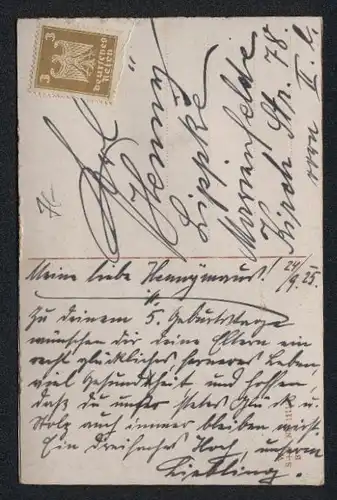 3 3
Deutsches
Reich
Frl.
Henny
Lippke
Marienfelde
Kirch Str. 78.
vorn II. l.
Meine liebe Hennymaus! 24/9. 25.
Zu deinem 5. Geburtstage
wünschen dir deine Eltern ein
recht glückliches ferneres Leben,
viel Gesundtheit und hoffen,
daß du unser stetes Glück u.
Stolz auch immer bleiben wirst.
Ein dreifaches Hoch, unserm
Liebling.